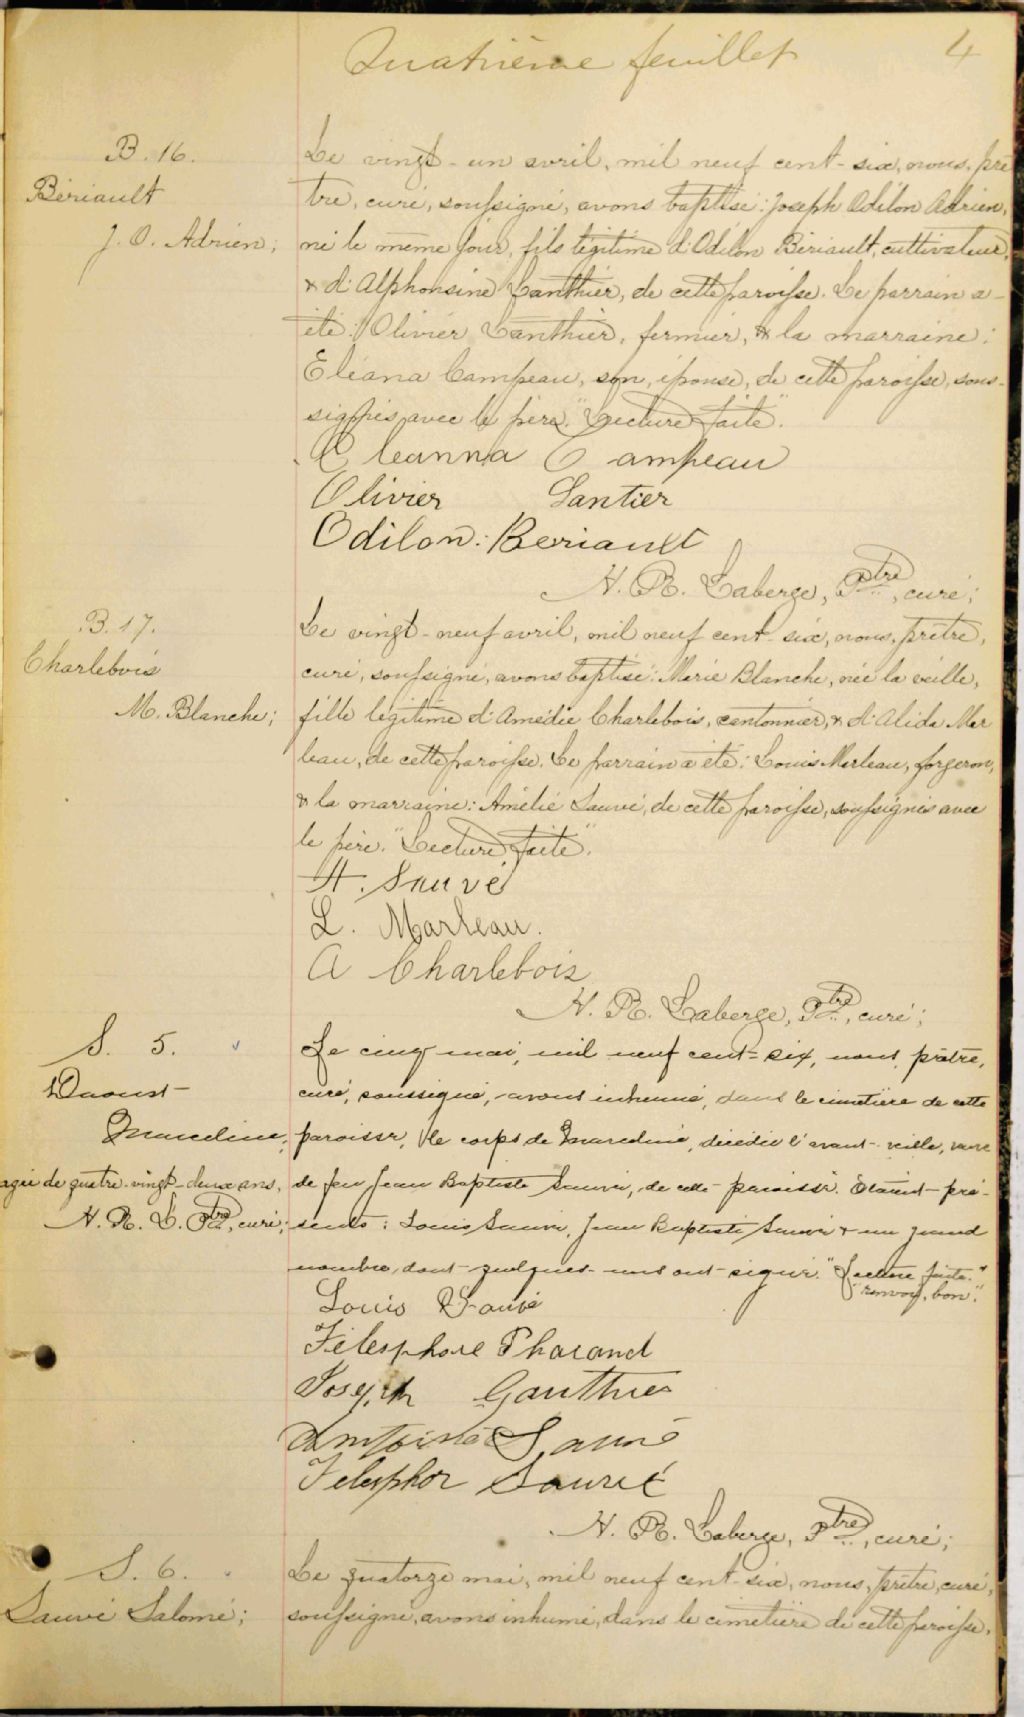 Quatrième feuillet 4
B. 16.
Bériault
J. O. Adrien;
Le vingt-un avril, mil neuf cent-six, nous, prê
tre, curé, soussigné, avons baptisé: Joseph Odilon Adrien,
né le même jour, fils légitime d'Odilon Bériault, cultivateur,
& d'Alphonsine Lanthier, de cette paroisse. Le parrain a
été: Olivier Lanthier, fermier, & la marraine:
Eléana Campeau, son épouse, de cette paroisse, sous-
signés avec le père. "Lecture faite".
Eleanna Campeau
Olivier Lantier
Odilon: Beriault
H. R. Laberge, Ptre, curé;
B. 17.
Charlebois
M. Blanche;
Le vingt-neuf avril, mil neuf cent-six, nous, prêtre,
curé, soussigné, avons baptisé: Marie Blanche, née la veille,
fille légitime d'Amédée Charlebois, cantonnier, & d'Alida Mar
leau, de cette paroisse. Le parrain a été: Louis Marleau, forgeron,
& la marraine: Amélie Sauvé, de cette paroisse, soussignés avec
le père. "Lecture faite".
A. Sauvé
L. Marleau.
A Charlebois
H. R. Laberge, Ptre, curé;
S. 5.
Daoust
Marceline,
agée de quatre-vingt-deux ans.
H. R. L. Ptre, curé;
Le cinq mai, mil neuf cent-six, nous, prêtre,
curé, soussigné, avons inhumé, dans le cimetière de cette
paroisse, le corps de Marceline, décédée l'avant-veille, veuve
de feu Jean Baptiste Sauvé, de cette paroisse. Etaient pré-
sents: Louis Sauvé, Jean Baptiste Sauvé & un grand
nombre, dont quelques-uns ont signé. "Lecture faite."
"renvoi, bon".
Louis Sauvé
Télesphore Pharand
Joseph Gauthier
Antoine Sauvé
Telesphor Sauvé
H. R. Laberge, Ptre, curé;
S. 6.
Sauvé Salomé;
Le quatorze mai, mil neuf cent-six, nous, prêtre, curé,
soussigné, avons inhumé, dans le cimetière de cette paroisse,